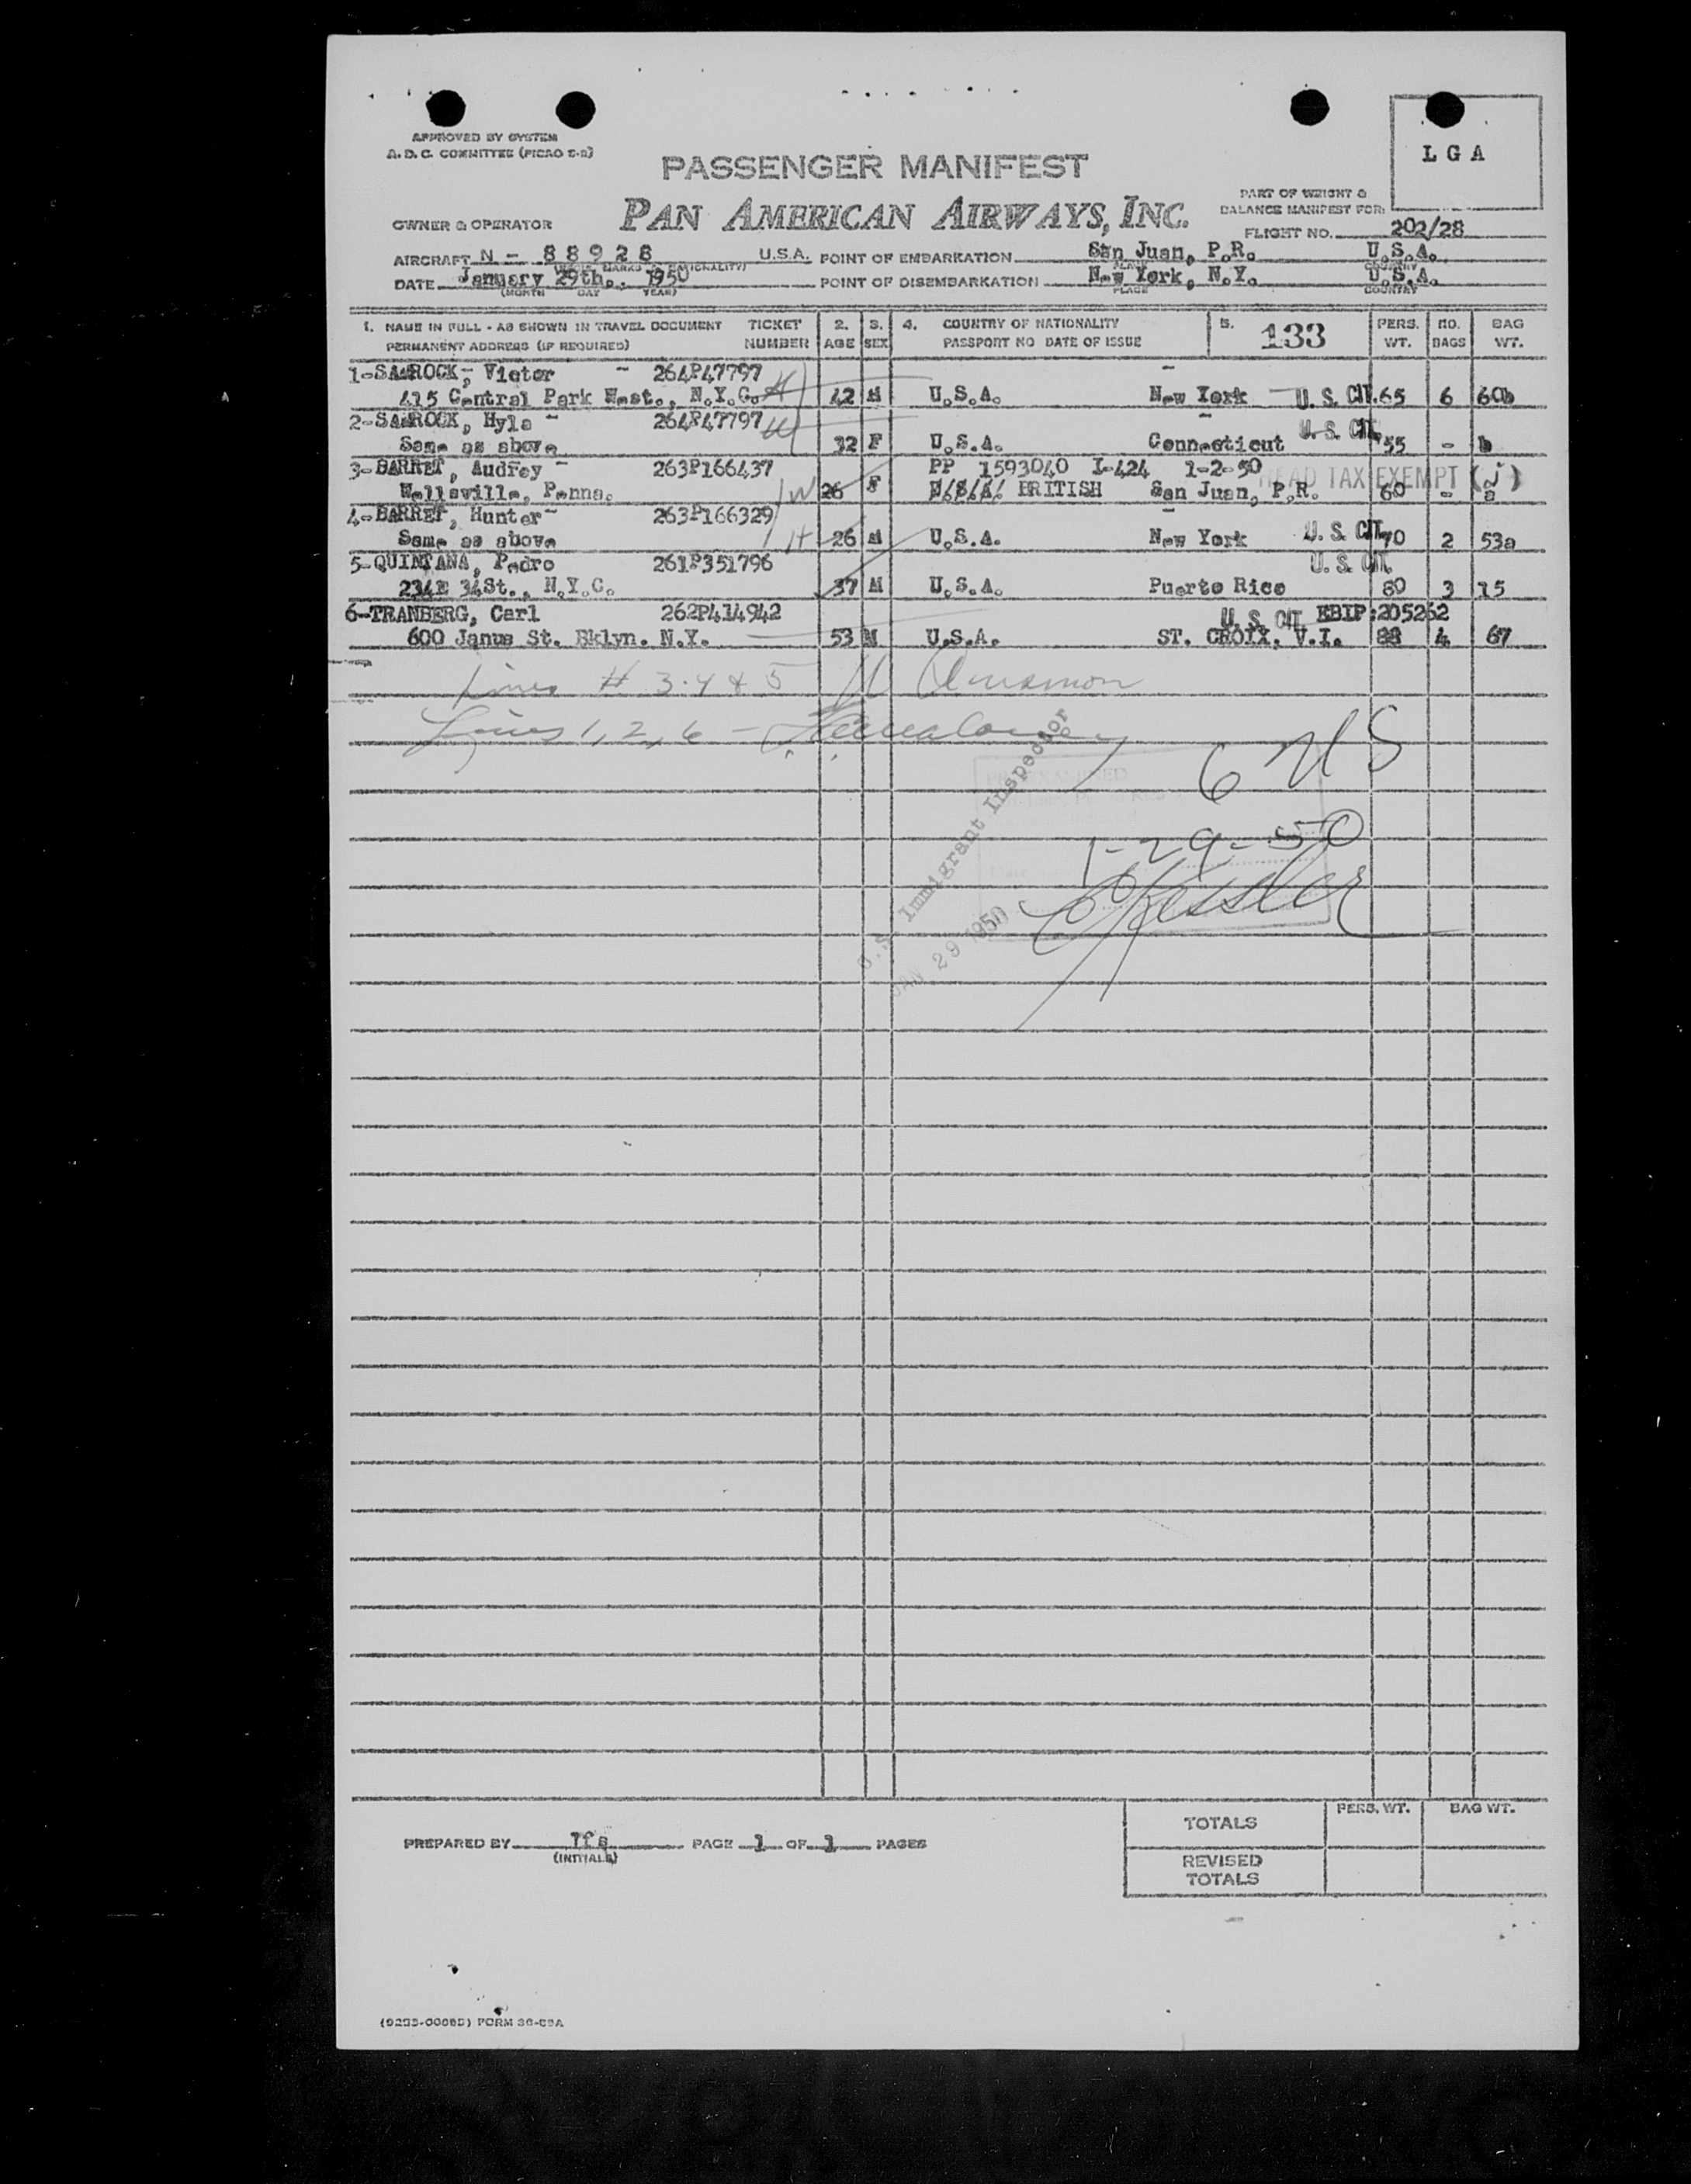 APPROVED BY SYSTEM
A.D.C. COMMITTEE (PICAO S-2)
LGA
PASSENGER MANIFEST
PART OF WEIGHT &
BALANCE MANIFEST FOR:
OWNER & OPERATOR PAN AMERICAN AIRWAYS, INC.
FLIGHT NO. 202/28
AIRCRAFT N - 88928 U.S.A. POINT OF EMBARKATION San Juan, P.R. U.S.A.
DATE January 29th., 1950 POINT OF DISEMBARKATION New York, N.Y. U.S.A.
(MONTH DAY YEAR) PLACE COUNTRY
1. NAME IN FULL - AS SHOWN IN TRAVEL DOCUMENT TICKET 2. 3. 4. COUNTRY OF NATIONALITY 5. 133 PERS. NO. BAG
PERMANENT ADDRESS (IF REQUIRED) NUMBER AGE SEX PASSPORT NO DATE OF ISSUE WT. BAGS WT.
1-SAMROCK, Victor - 264P47797
415 Central Park West., N.Y.C. 42 M U.S.A. New York U.S. CIT. 65 6 60b
2-SAMROCK, Hyla - 264P47797
Same as above 32 F U.S.A. Connecticut U.S. CIT. 55 - b
3-BARRET, Audrey - 263P166437 PP 1593040 I-424 1-2-50
Wellsville, Penna. 26 F U/S/A/ BRITISH San Juan, P.R. HEAD TAX EXEMPT (J) 60 - a
4-BARRET, Hunter - 263P166329
Same as above 26 M U.S.A. New York U.S. CIT. 70 2 53a
5-QUINTANA, Pedro 261P351796 U.S. CIT.
234E 34St., N.Y.C. 37 M U.S.A. Puerto Rico 80 3 15
6-TRANBERG, Carl 262P414942 U.S. CIT. EBIP:205262
600 Janus St. Bklyn. N.Y. 53 M U.S.A. ST. CROIX, V.I. 88 4 67
Lines # 3.4 & 5
Lines 1, 2, 6 -
6 US
1-29-50
Kessler
U.S. Immigrant Inspector
JAN 29 1950
TOTALS PERS. WT. BAG WT.
PREPARED BY PAGE 1 OF 1 PAGES
(INITIALS)
REVISED
TOTALS
FORM 36-